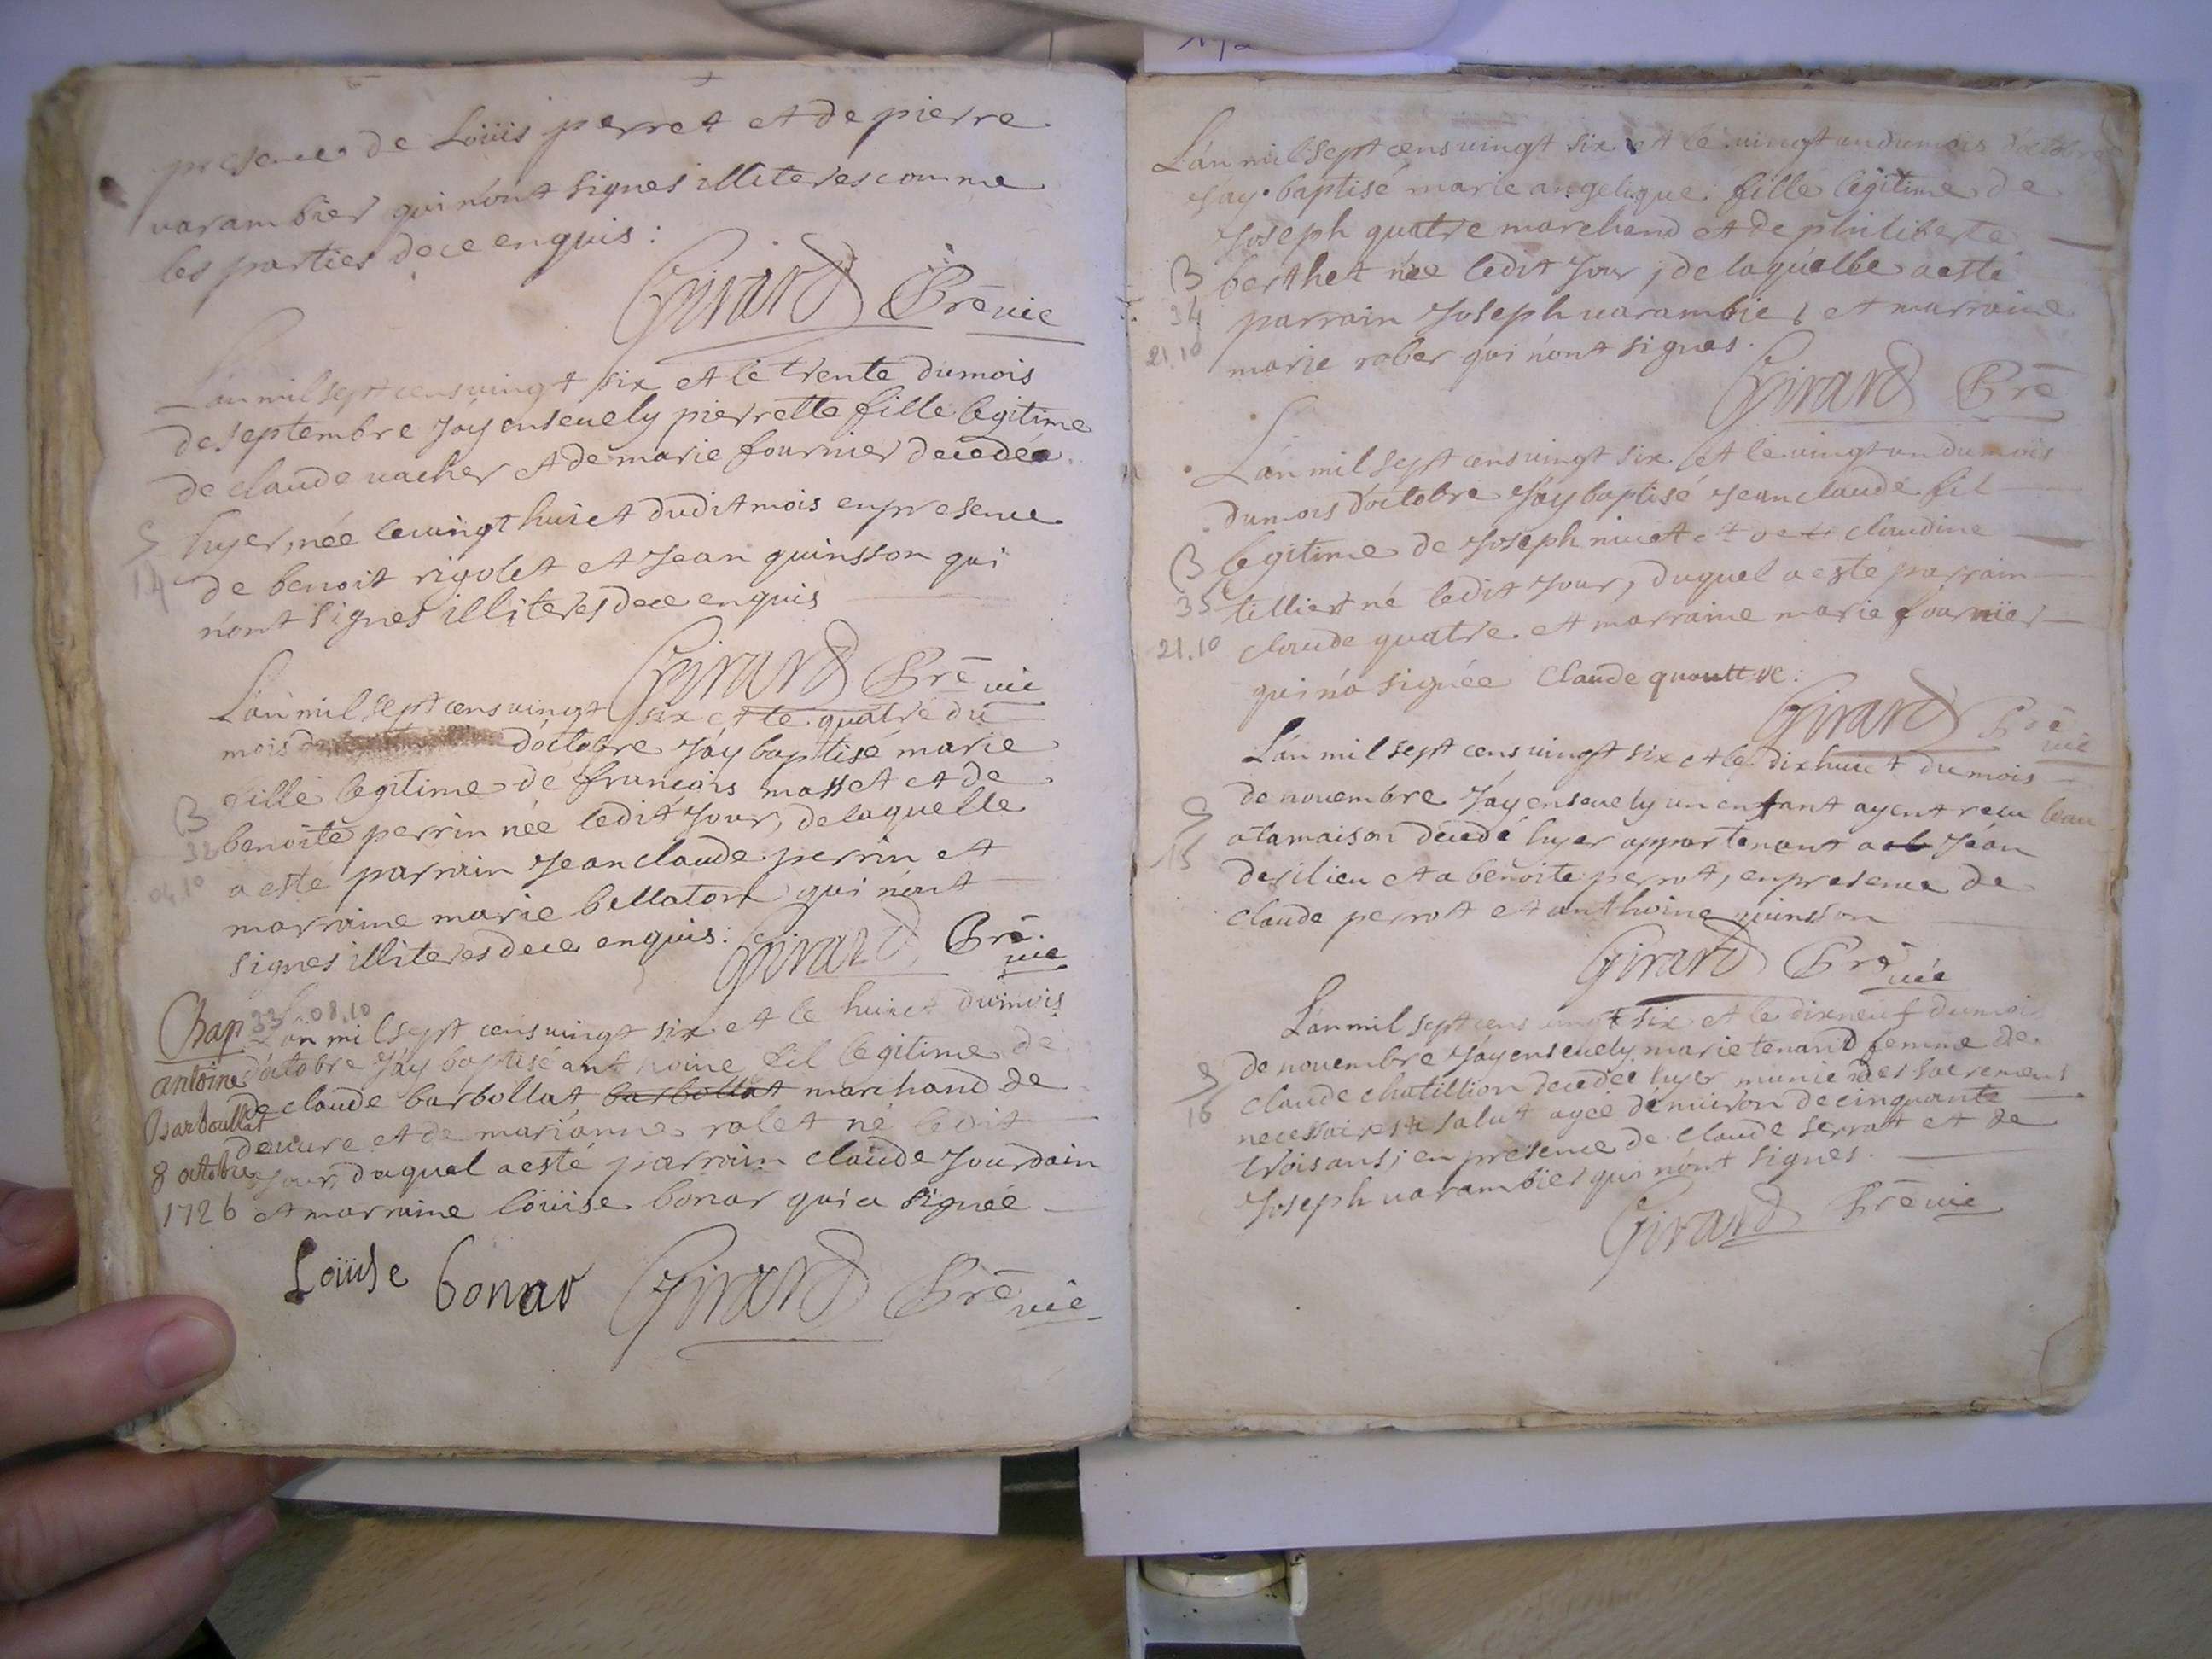 presence de Loüis perret et de pierre
varambier qui n'ont signes illiteres comme
les parties de ce enquis :
Girard Prē vic
L'an mil sept cens vingt six et le trente du mois
de septembre J'ay ensevely pierrette fille legitime
de claude vacher et de marie fournier decedée
S hyer, née le vingt huict dudit mois en presence
14 de benoit rigolet et Jean quinsson qui
n'ont signes illiteres de ce enquis
Girard Prē vic
L'an mil sept cens vingt six et le quatre du
mois d'octobre J'ay baptisé marie
fille legitime de francois masset et de
B benoite perrin née ledit Jour, de laquelle
32 a este parrain Jean claude perrin et
04.10 marraine marie bellaton qui n'ont
signes illiteres de ce enquis :
Girard Prē vic
Bap 33 08.10
L'an mil sept cens vingt six et le huict du mois
antoine d'octobre J'ay baptisé anthoine fil legitime de
Barboullat de claude barbollat barbollat marchand de
demure et de marianne rolet né ledit
8 octobre Jour, duquel a esté parrain claude Jourdain
1726 et marraine loüise bonar qui a signée
Loüise bonar Girard Prē vic
L'an mil sept cens vingt six et le vingt un du mois d'octobre
J'ay baptisé marie angelique fille legitime de
Joseph quatre marchand et de philiberte
B berthet née ledit Jour, de laquelle a esté
34 parrain Joseph varambier et marraine
21.10 marie rober qui n'ont signes.
Girard Prē
L'an mil sept cens vingt six et le vingt un du mois
du mois d'octobre J'ay baptisé Jean claude fil
B legitime de Joseph et de claudine
35 tilliert né ledit Jour, duquel a esté parrain
21.10 claude quatre et marraine marie fournier
qui n'a signée Claude quouttre :
Girard Prē vic
L'an mil sept cens vingt six et le dix huict du mois
de novembre J'ay ensevely un enfant ayent recu l'eau
S a la maison decedé hyer appartenant a Jean
15 desilieu et a benoite perrot, en presence de
claude perrot et anthoine quinsson
Girard Prē vic
L'an mil sept cens vingt six et le dix neuf du mois
de novembre J'ay ensevely marie tenard femme de
S claude chatillion decedée hyer munie des sacremens
16 necessaires a salut agée d'enuiron de cinquante
trois ans, en presence de claude serrat et de
Joseph varambier qui n'ont signes.
Girard Prē vic